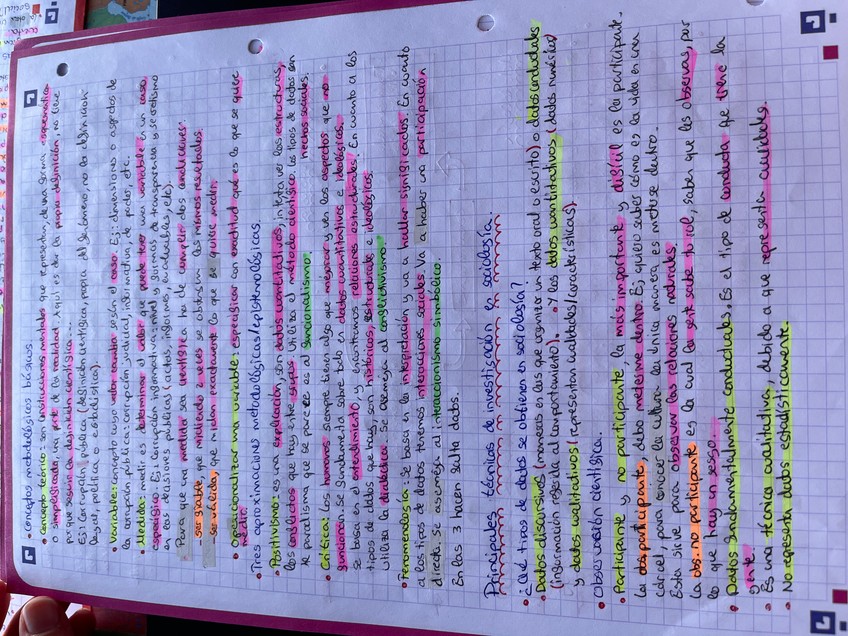 • Conceptos metodológicos básicos.
• Concepto teórico: son construcciones mentales que representan, de una forma esquemática
y simplificada, una parte de la realidad. Aquí es dar la propia definición, no tiene
por qué seguir la definición científica.
Ej: Corrupción pública (definición científica, propia del fenómeno, no la definición
legal, política o estadística).
• Variable: concepto cuyo valor cambia según el caso. Ej: dimensiones o aspectos de
la corrupción pública: corrupción judicial, informativa, de poder, etc.
• Medida: medir es determinar el valor que puede tener una variable en un caso
específico. Ej: Corrupción informativa: nivel y formas de transparencia y secretismo
en las decisiones públicas (actas, informes, evaluaciones, etc).
Para que una medida sea científica ha de cumplir dos condiciones.
- ser fiable, que midiendo 2 veces se obtienen los mismos resultados.
- ser válida, que midan exactamente lo que se quiere medir.
• Operacionalizar una variable: especificar con exactitud que es lo que se quiere
medir.
• Tres aproximaciones metodológicas/epistemológicas.
• Positivismo: es una explicación, son datos cuantitativos, intenta ver las estructuras,
los conflictos que hay entre grupos. Utiliza el método científico. Los tipos de datos son
hechos sociales.
El paradigma que se parece es el funcionalismo.
• Crítica: Los humanos siempre tienen algo que mejorar y ven los aspectos que no
funcionan. Se fundamenta sobre todo en datos cuantitativos e ideológicos.
Se basa en el entendimiento, y encontramos relaciones estructurales. En cuanto a los
tipos de datos que hay, son históricos, estructurales e ideológicos.
Utiliza la dialéctica. Se asemeja al conflictivismo.
• Fenomenología: se basa en la interpretación y va a hallar significados. En cuanto
a los tipos de datos tenemos interacciones sociales. Va a haber una participación
directa. Se asemeja al interaccionismo simbólico.
En las 3 hacen falta datos.
Principales técnicas de investigación en sociología.
• ¿Qué tipos de datos se obtienen en sociología?
• Datos discursivos (manera en las que organizar un texto oral o escrito) o datos conductuales
(información referida al comportamiento). • Y los datos cuantitativos (datos numéricos)
y datos cualitativos (representan cualidades/características).
• Observación científica.
• Participante y no participante, la más importante y difícil es la participante.
La obs. participante, debo meterme dentro. Ej, quiero saber cómo es la vida en una
cárcel, para conocer la cultura la única manera es meterse dentro.
Esta sirve para observar las relaciones naturales.
La obs. no participante es la cual la gente sabe tu rol, saben que les observas, por
lo que hay un sesgo.
• Datos fundamentalmente conductuales. Es el tipo de conducta que tiene la
gente.
• Es una técnica cualitativa, debido a que representa cualidades.
• No representa datos estadísticamente.